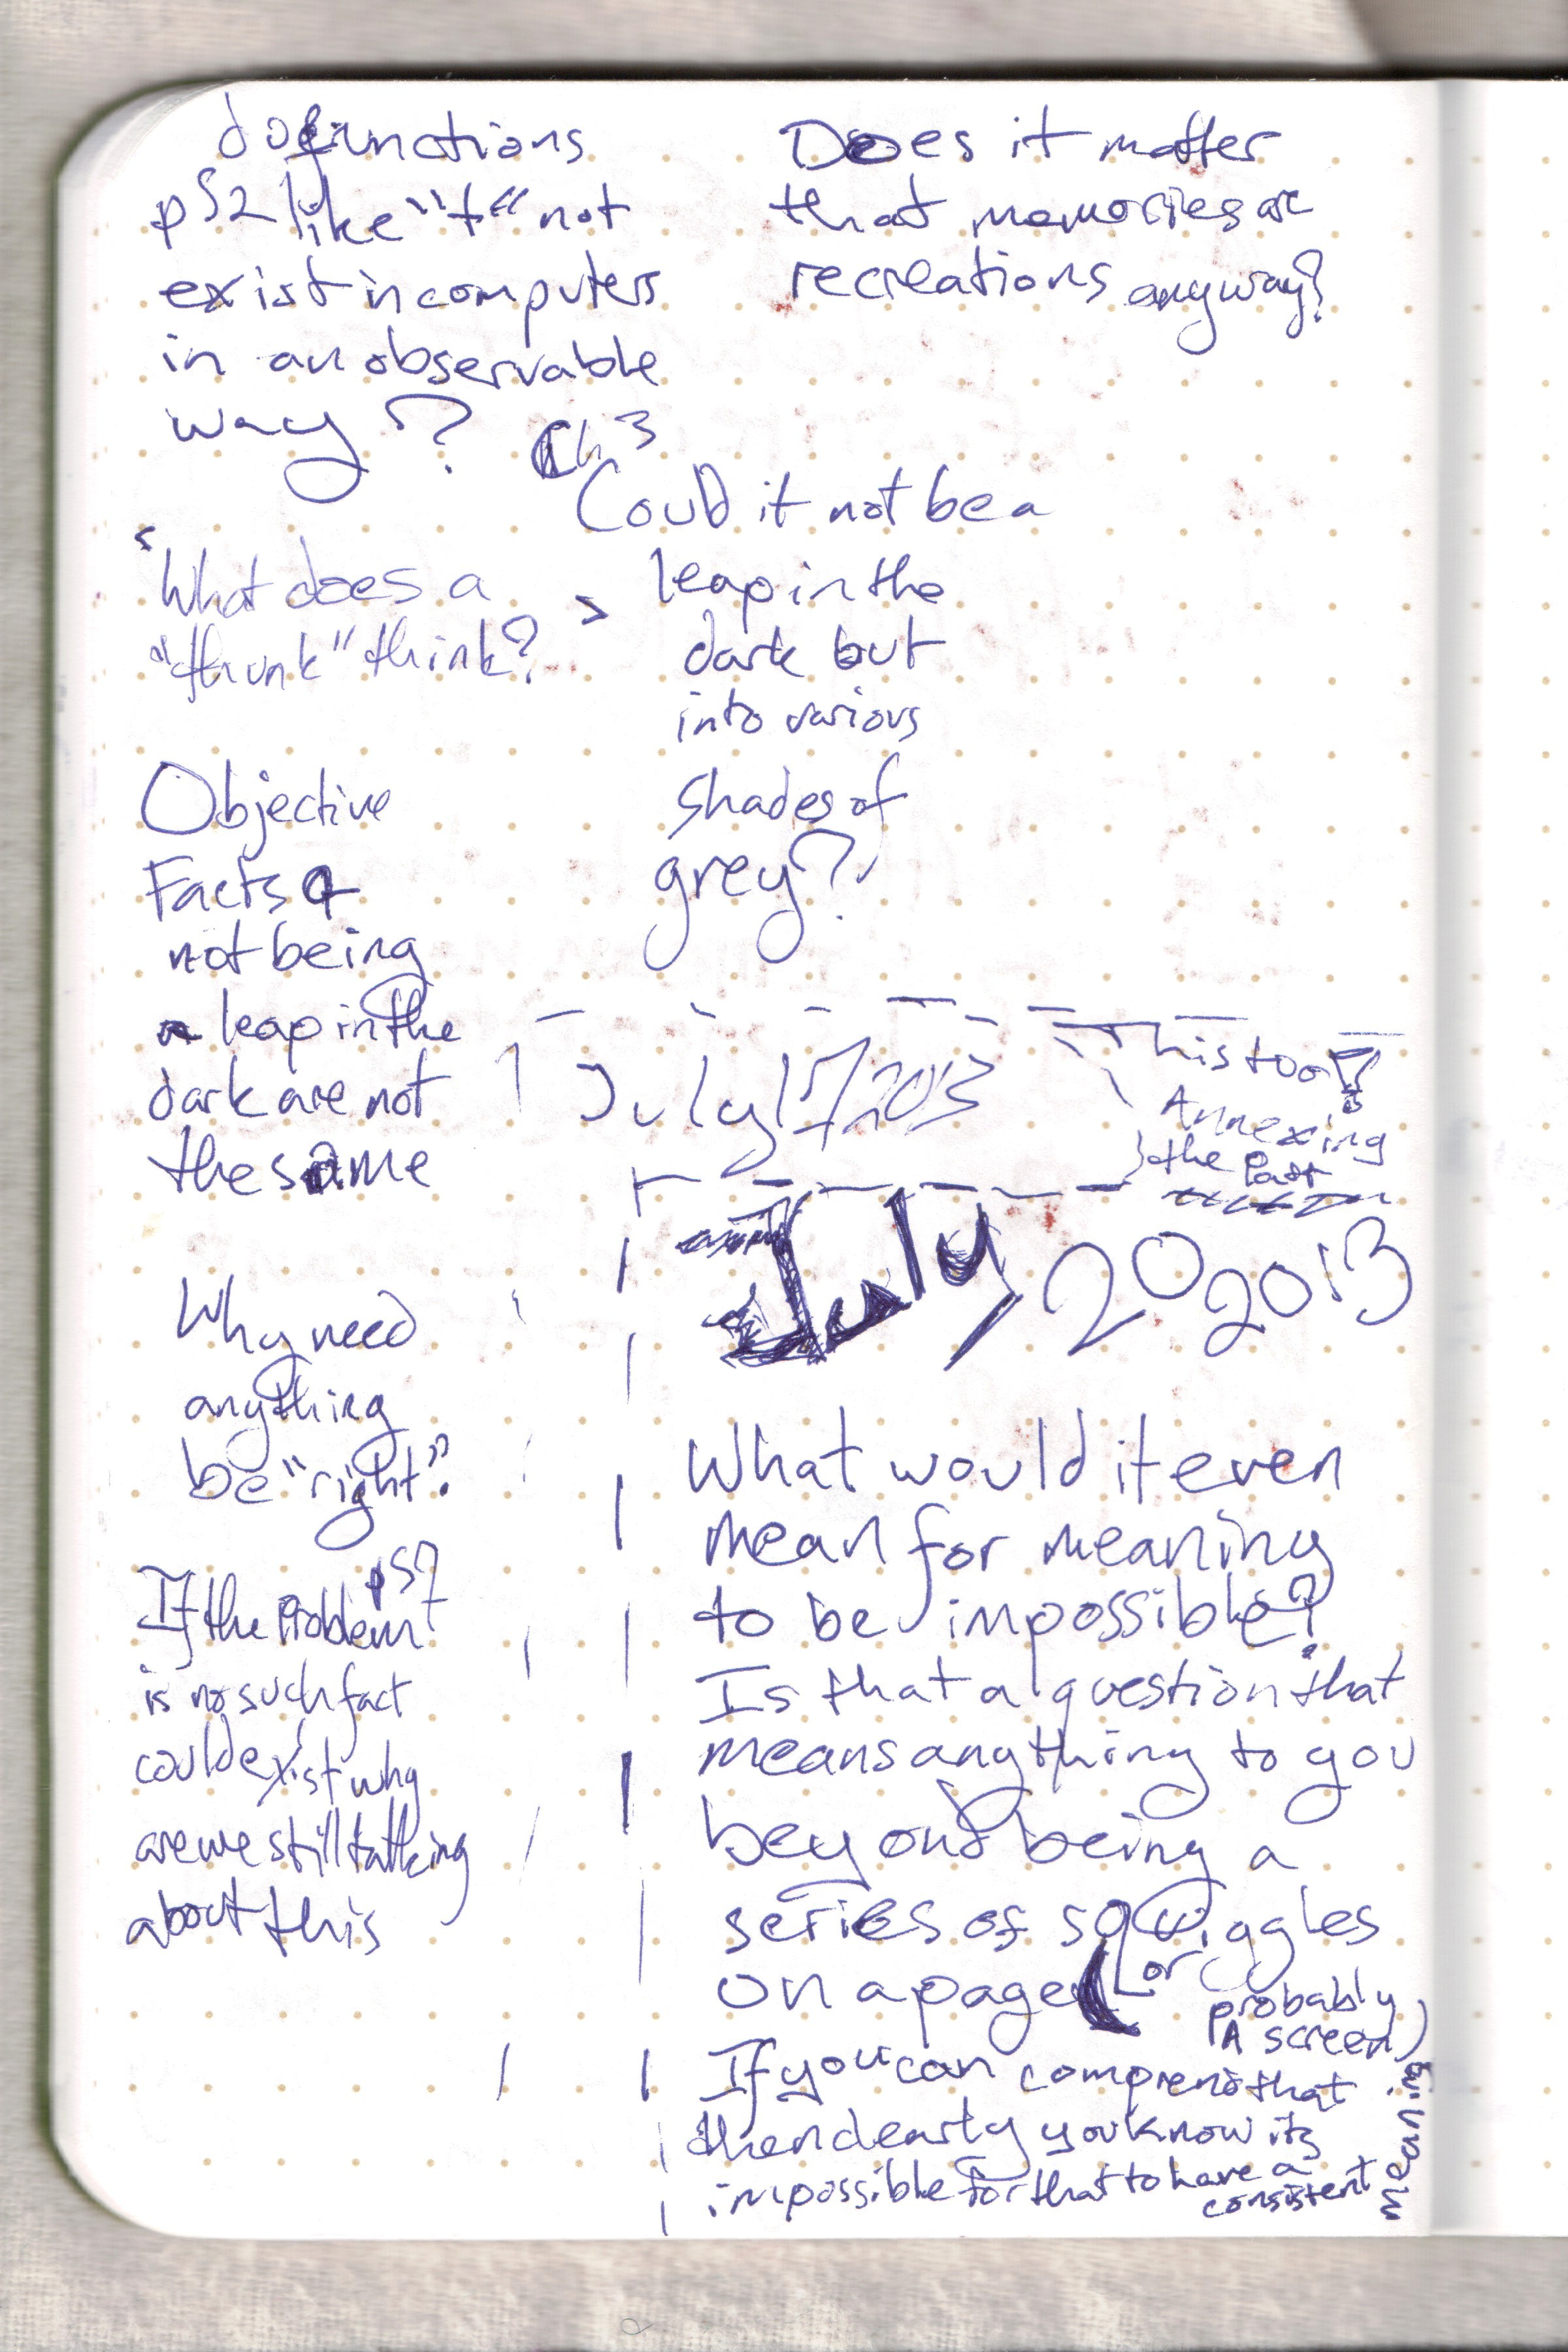 do functions
p52 like "t" not
exist in computers
in an observable
way?
Does it matter
that memories are
recreations anyway?
Ch 3
Could it not be a
leap in the
dark but
into various
shades of
grey?
What does a
"thunk" think? >
Objective
Facts &
not being
a leap in the
dark are not
the same
July 17/2013
This too
is
Annexing
the Past
July, 20 2013
Why need
anything
be "right"?
p57
If the problem
is no such fact
could exist why
are we still talking
about this
What would it even
mean for meaning
to be impossible?
Is that a question that
means anything to you
beyond being a
series of squiggles
on a page (or
probably
A screen)
If you can comprend that
then clearly you know its
impossible for that to have a
consistent
meaning